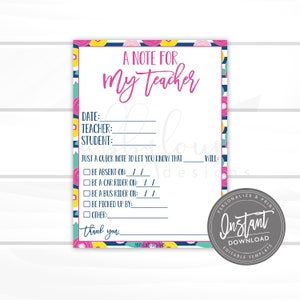 A NOTE FOR
My Teacher
DATE:
TEACHER:
STUDENT:
JUST A QUICK NOTE TO LET YOU KNOW THAT ____ WILL:
BE ABSENT ON / /
BE A CAR RIDER ON / /
BE A BUS RIDER ON / /
BE PICKED UP BY:
OTHER:
Thank you,
PERSONALIZE & PRINT
Instant
DOWNLOAD
EDITABLE TEMPLATE